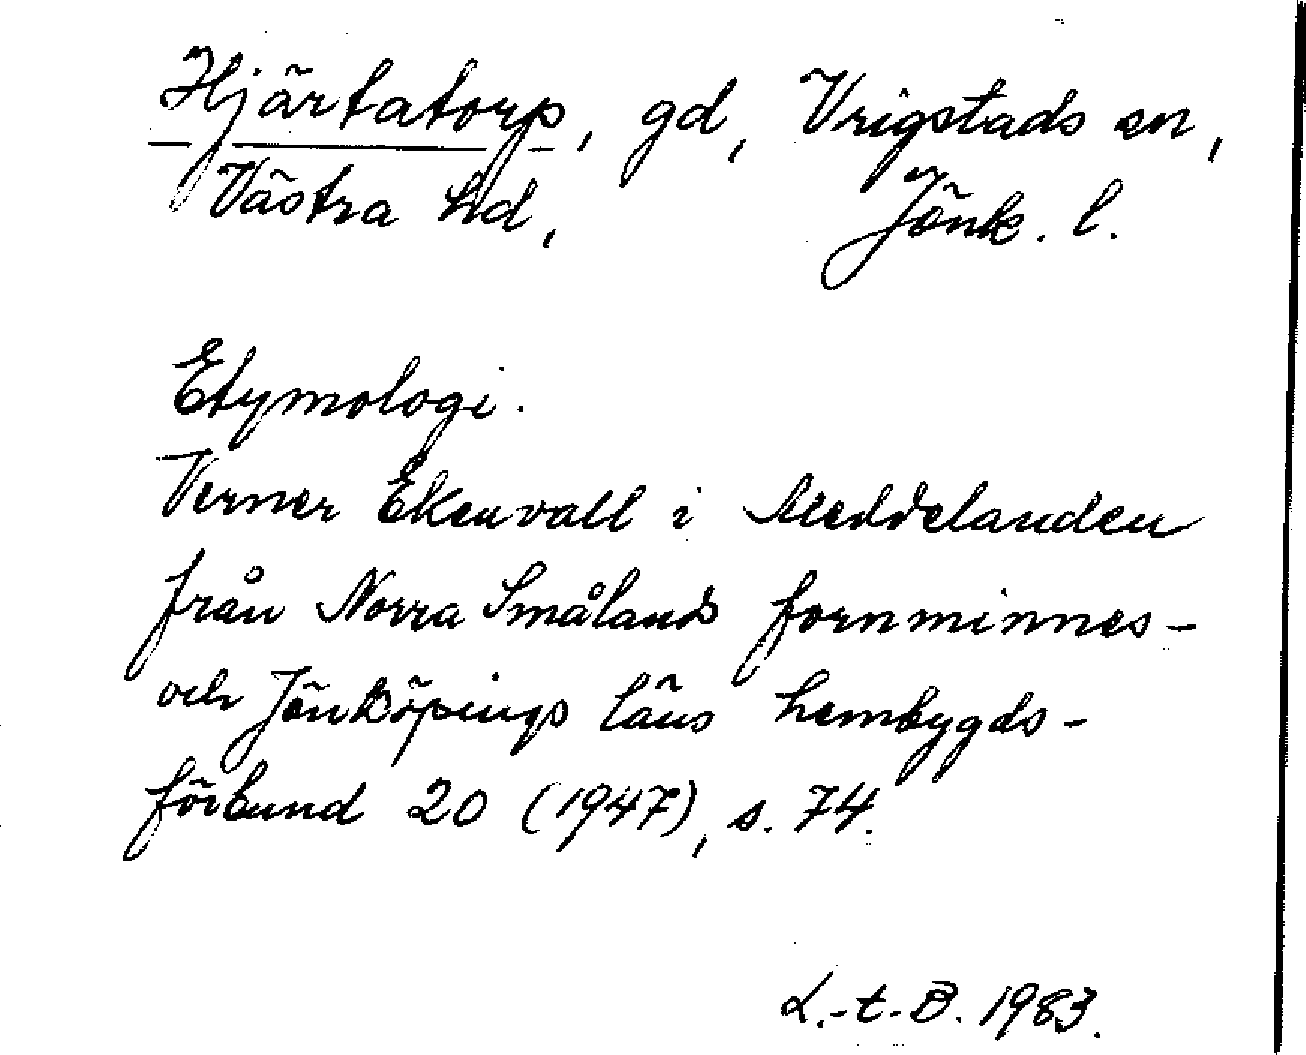 Hjärtatorp, gd, Vrigstads sn,
Västra hd, Jönk. l.
Etymologi.
Verner Ekenvall i Meddelanden
från Norra Smålands fornminnes-
och Jönköpings läns hembygds-
förbund 20 (1947), s. 74.
L.-t.-B. 1983.